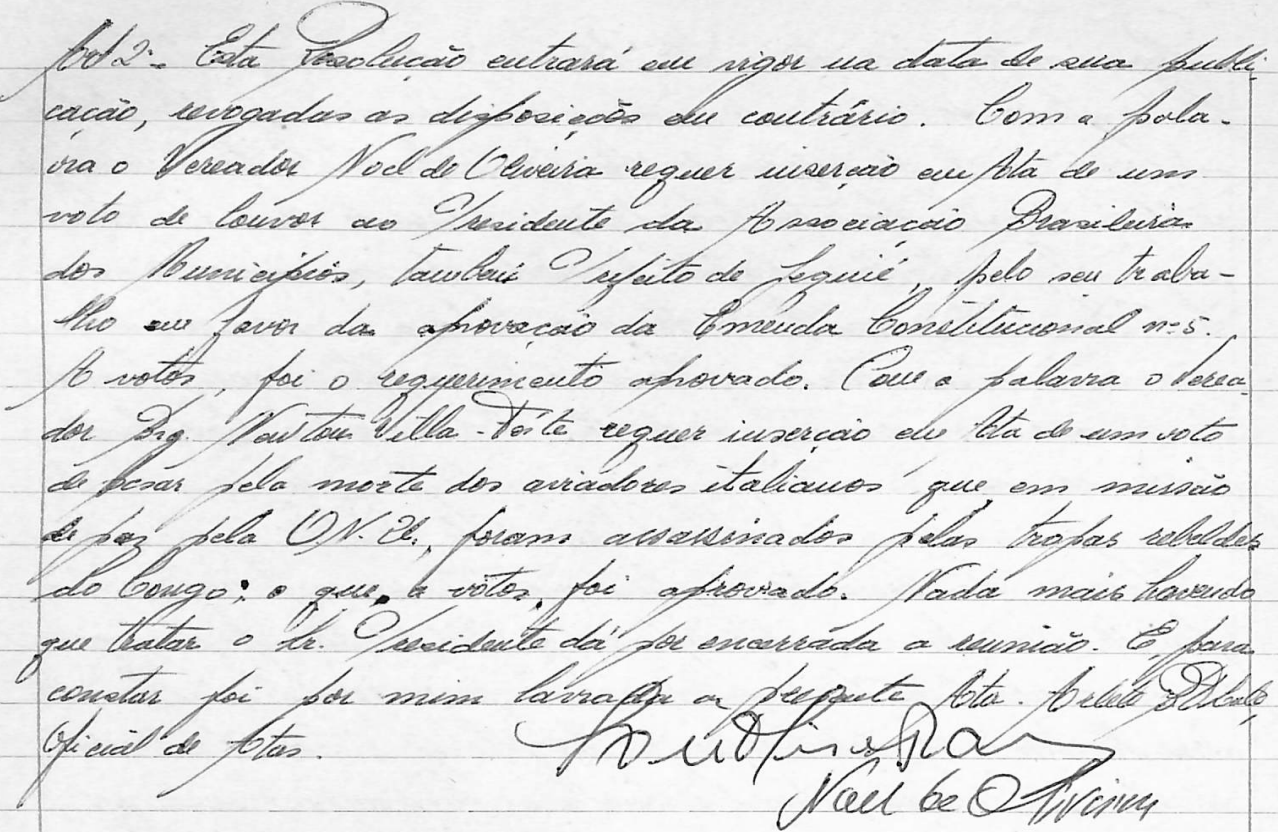 Art 2º - Esta Resolução entrará em vigor na data de sua publi-
cação, revogadas as disposições em contrário. Com a pala-
vra o Vereador Noel de Oliveira requer inserção em Ata de um
voto de louvor ao Presidente da Associação Brasileira
dos Municípios, também Prefeito de Jequié, pelo seu traba-
lho em favor da aprovação da Emenda Constitucional nº 5.
A votos, foi o requerimento aprovado. Com a palavra o Verea-
dor Brg. Newton Villa-Forte requer inserção em Ata de um voto
de pesar pela morte dos aviadores italianos que em missão
de paz pela O.N.U., foram assassinados pelas tropas rebeldes
do Congo; o que, a votos, foi aprovado. Nada mais havendo
que tratar o Sr. Presidente dá por encerrada a reunião. E, para
constar foi por mim lavrada a presente Ata. Arlete
Oficial de Atas.
Noel de Oliveira